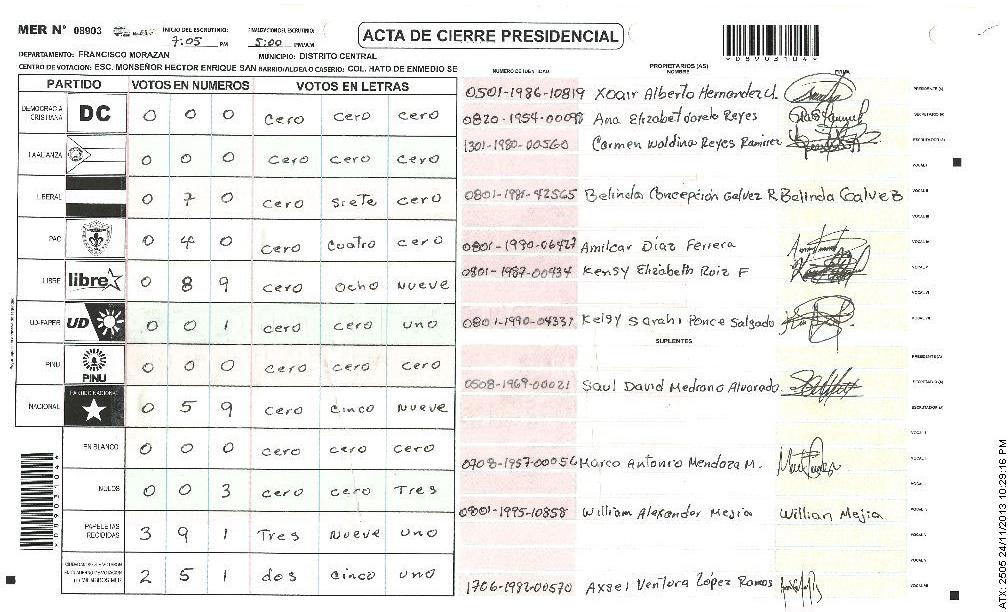 MER N° 08903
INICIO DEL ESCRUTINIO: 7:05 PM
FINALIZACION DEL ESCRUTINIO: 5:00 PM/AM
ACTA DE CIERRE PRESIDENCIAL
*08903104*
DEPARTAMENTO: FRANCISCO MORAZAN
MUNICIPIO: DISTRITO CENTRAL
CENTRO DE VOTACION: ESC. MONSEÑOR HECTOR ENRIQUE SAN BARRIO/ALDEA O CASERIO: COL. HATO DE ENMEDIO SE
PARTIDO VOTOS EN NUMEROS VOTOS EN LETRAS
DEMOCRACIA CRISTIANA DC 0 0 0 cero cero cero
LA ALIANZA 0 0 0 cero cero cero
LIBERAL 0 7 0 cero siete cero
PAC 0 4 0 cero cuatro cero
LIBRE libre 0 8 9 cero ocho nueve
UD-FAPER UD 0 0 1 cero cero uno
PINU PINU 0 0 0 cero cero cero
NACIONAL PARTIDO NACIONAL 0 5 9 cero cinco nueve
EN BLANCO 0 0 0 cero cero cero
NULOS 0 0 3 cero cero Tres
PAPELETAS RECIBIDAS 3 9 1 Tres Nueve uno
2 5 1 dos cinco uno
*08903104*
NUMERO DE IDENTIDAD
PROPIETARIOS (AS)
NOMBRE
FIRMA
0501-1986-10819 Xoair Alberto Hernandez U. PRESIDENTE (A)
0820-1954-00098 Ana Elizabeth Reyes SECRETARIO (A)
1301-1980-00560 Carmen Waldina Reyes Ramirez ESCRUTADOR (A)
VOCAL I
0801-1981-42565 Belinda Concepción Galvez R Belinda Galvez VOCAL II
VOCAL III
0801-1990-06427 Amilcar Díaz Ferrera VOCAL IV
0801-1987-00934 Kensy Elizabeth Ruiz F VOCAL V
VOCAL VI
0801-1990-04337 Keisy Sarahi Ponce Salgado VOCAL VII
SUPLENTES
PRESIDENTE (A)
0508-1969-00021 Saul David Medrano Alvarado SECRETARIO (A)
ESCRUTADOR (A)
VOCAL I
0708-1957-00056 Marco Antonio Mendoza M.
0801-1995-10858 William Alexander Mejia Willian Mejia
1706-1982-00570 Axsel Ventura López Ramos
ATX: 2505 24/11/2013 10:29:16 PM